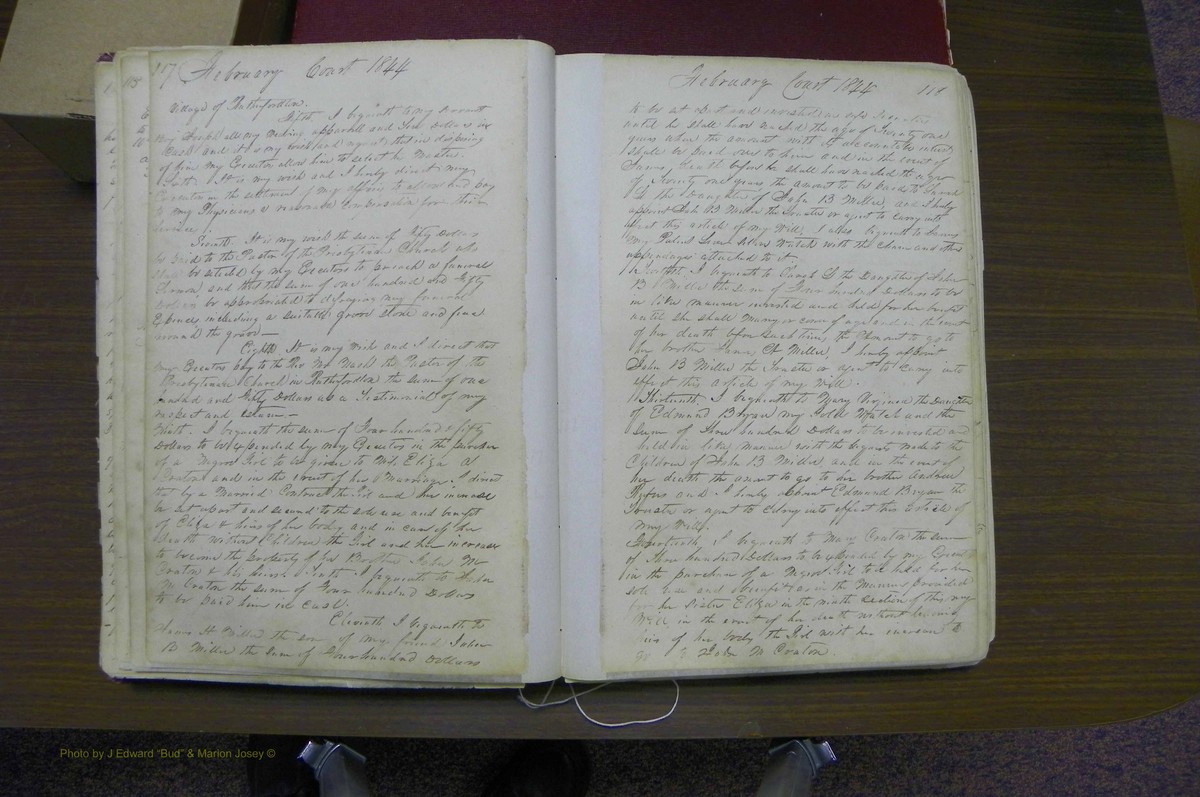 117 February Court 1844
Village of Rutherfordton.
Fifth I bequeath to my Servant
Boy Joseph all my wearing apparell and Ten Dollars in
Cash and it is my wish and request that in disposing
of him my Executor allow him to select his Master.
Sixth. It is my wish and I hereby direct my
Executor in the settlement of my affairs to allow and pay
to my Physicians a reasonable compensation for their
Seventh. It is my wish the sum of fifty Dollars
be paid to the Pastor of the Presbyterian Church who
shall be selected by my Executors to preach a funeral
Sermon, and that the sum of one hundred and fifty
Dollars be appropriated to defraying my funeral
Expences including a suitable grave stone and
round the grave—
Eighth. It is my wish and I direct that
my Executor pay to the Rev Mr Nash the Pastor of the
Presbyterian Church in Rutherfordton the sum of one
hundred and fifty Dollars as a Testimonial of my
respect and esteem—
Ninth. I bequeath the sum of Four hundred & fifty
Dollars to be expended by my Executors in the purchase
of a Negro Girl to be given to Miss Eliza A
Coxton and in the event of her Marriage, I direct
that by a Married Contract the Girl and her increase
be set apart and secured to the sole use and benefit
of Eliza & heirs of her body, and in case of her
death without Children the Girl and her increase
to become the property of her Brother John M
Coxton & his heirs. Tenth I bequeath to John
M Coxton the sum of Four hundred Dollars
to be paid him in cash.
Eleventh I bequeath to
James H Miller the son of my friend John
B Miller the sum of Four hundred Dollars
February Court 1844 118
to be at Cost and invested
until he shall have reached the age of Twenty one
years when the amount with its accumulated interest
shall be paid over to him and in the event of
James, death before he shall have reached the age
of Twenty one years the amount to be paid to
the Daughter of John B Miller, and I hereby
appoint John B Miller the Trustee or agent to carry into
effect this article of my Will, I also bequeath to James
my Patent Lever Silver Watch with the Chain and other
appendages attached to it
I bequeath to the Daughter of John
B Miller the sum of Four hundred Dollars to be
in like manner invested and held for her benefit
until she shall marry or come of age and in the event
of her death before such time, the amount to go to
her brother James H. Miller, I hereby appoint
John B Miller the Trustee or agent to carry into
effect this article of my Will.
Thirteenth, I bequeath to Mary Virginia the Daughter
of Edmund Bryan my Gold Watch and the
sum of hundred Dollars to be invested and
held in like manner with the bequests made to the
Children of John B Miller, and in the event of
her death the amount to go to her brother Andrew
Rufus and I hereby appoint Edmund Bryan the
Trustee or agent to carry into effect this article of
my Will.
Fourteenth, I bequeath to Mary Coxton the sum
of Three hundred Dollars to be expended by my Executor
in the purchase of a Negro Girl to be held for her
sole use and benefit as in the manner provided
for her Sister Eliza in the ninth section of this my
Will in the event of her death without leaving
heirs of her body the Girl with her increase to
go to John M Coxton.
Photo by J Edward "Bud" & Marion Josey ©